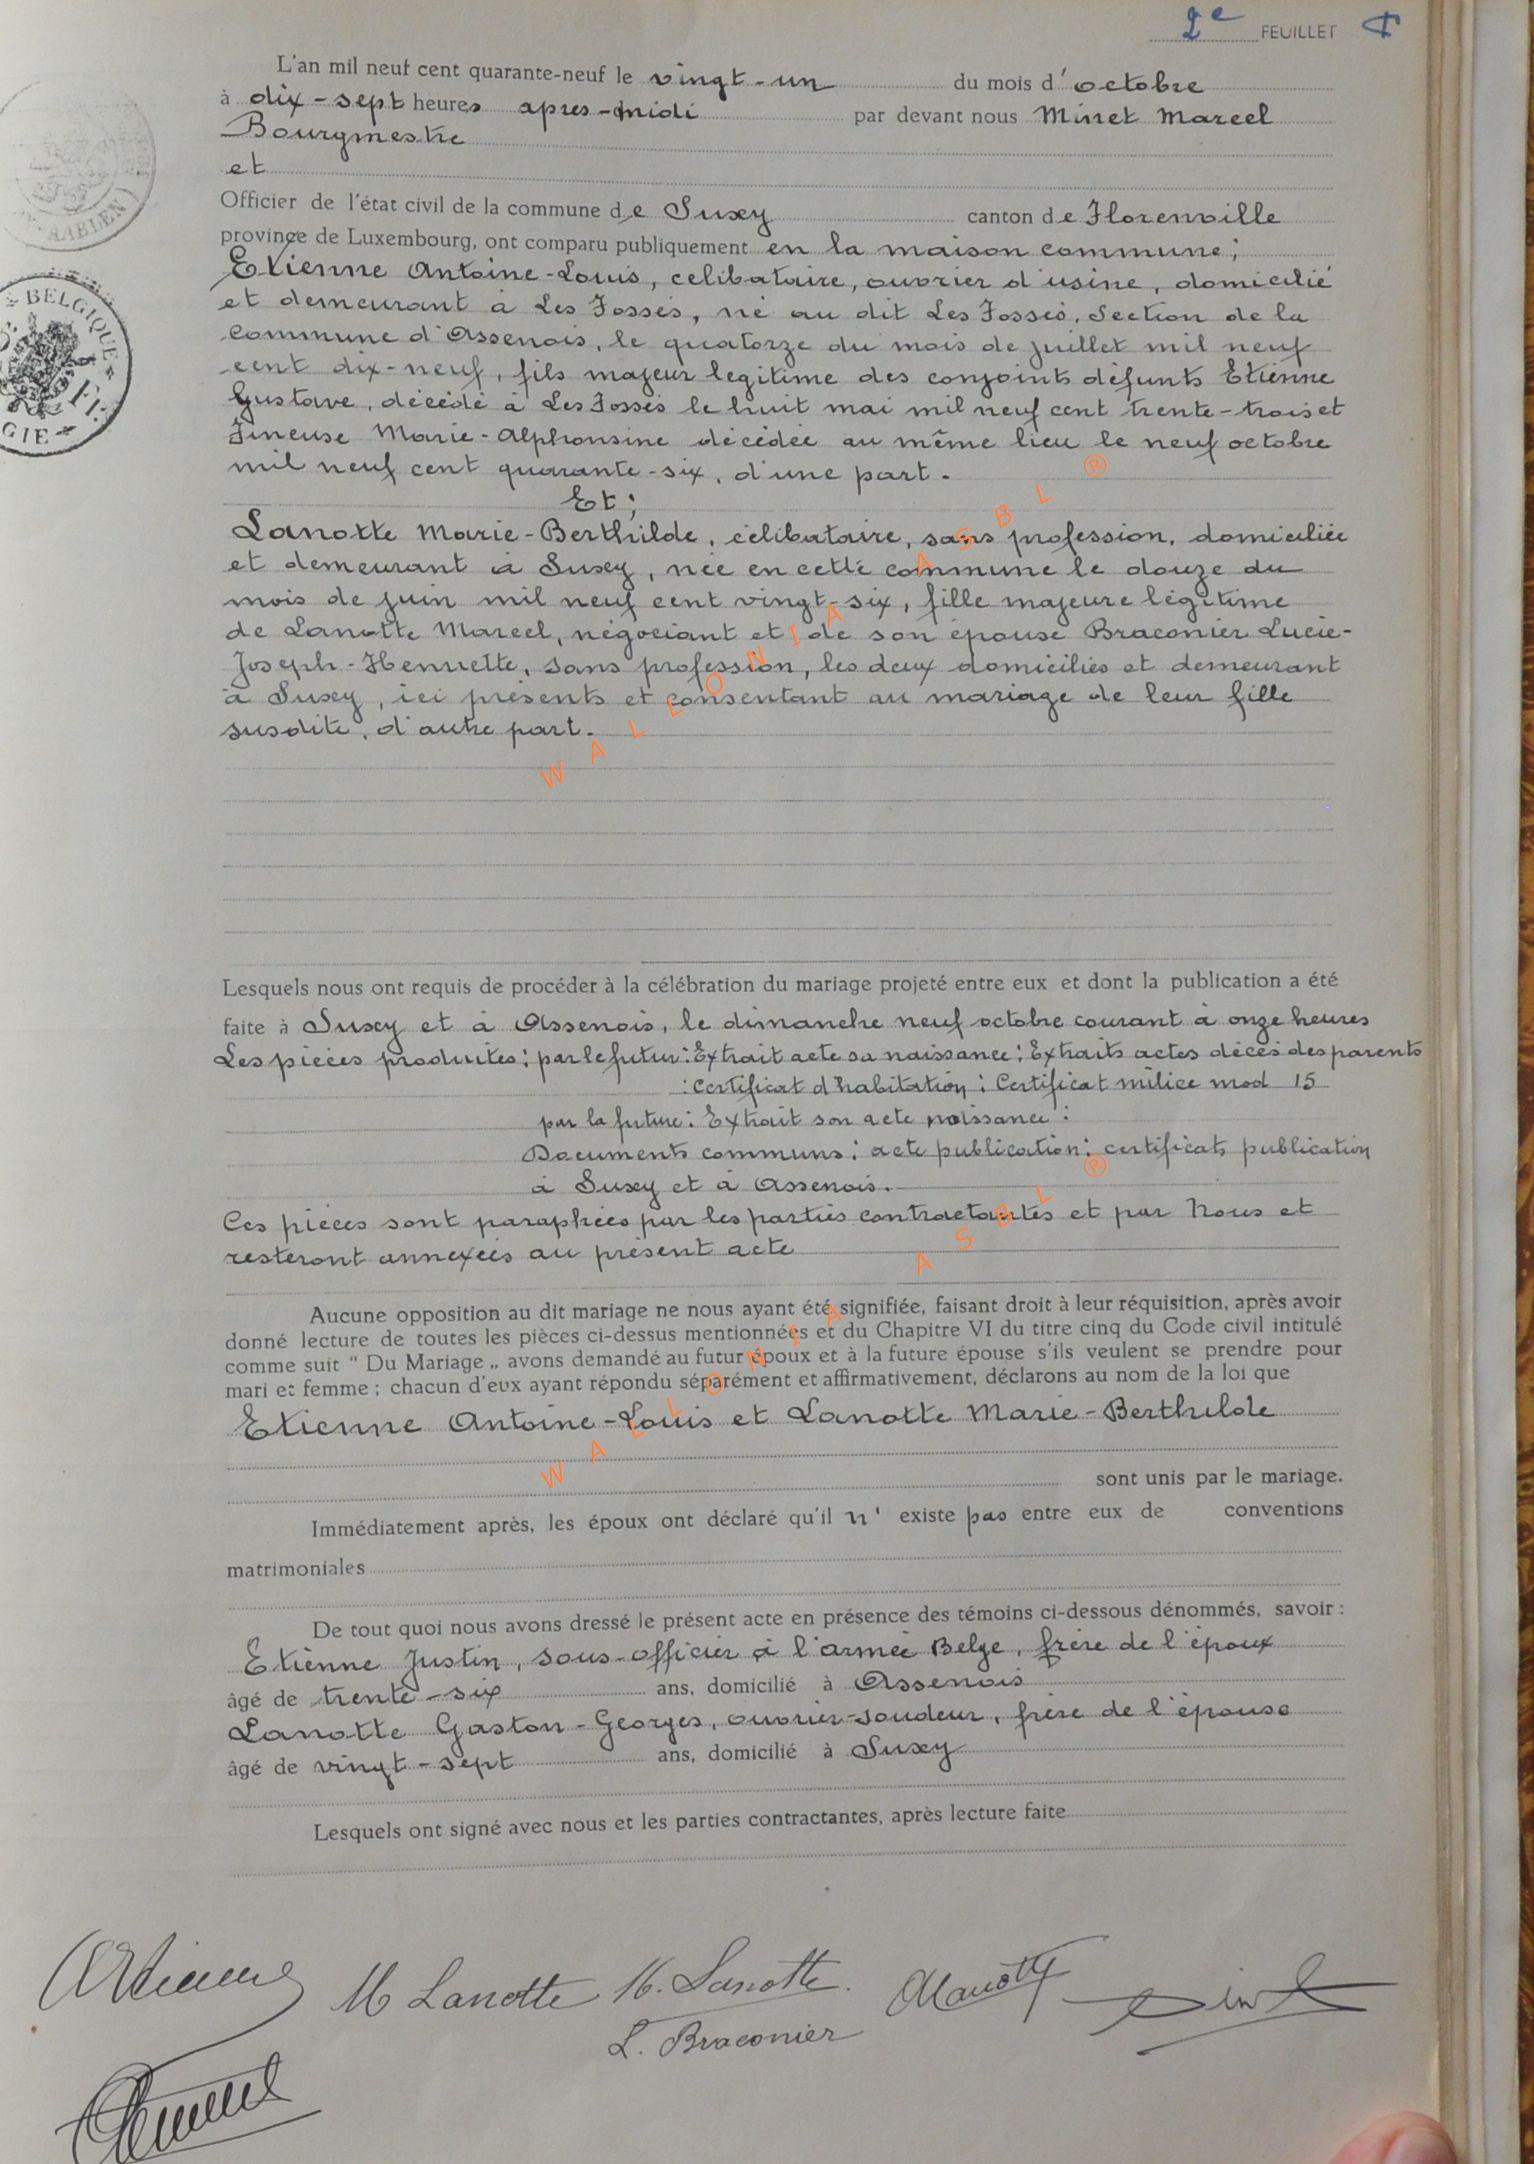 2e FEUILLET
L'an mil neuf cent quarante-neuf le vingt-un du mois d'octobre
à dix-sept heures après-midi par devant nous Minet Marcel
Bourgmestre
et
Officier de l'état civil de la commune de Suxy canton de Florenville
province de Luxembourg, ont comparu publiquement en la maison commune;
Etienne Antoine-Louis, célibataire, ouvrier d'usine, domicilié
et demeurant à Les Fossés, né au dit Les Fossés, Section de la
commune d'Assenois, le quatorze du mois de juillet mil neuf
cent dix-neuf, fils majeur légitime des conjoints défunts Etienne
Gustave, décédé à Les Fossés le huit mai mil neuf cent trente-trois et
Fineuse Marie-Alphonsine décédée au même lieu le neuf octobre
mil neuf cent quarante-six, d'une part.
Et;
Lanotte Marie-Berthilde, célibataire, sans profession, domiciliée
et demeurant à Suxey, née en cette commune le douze du
mois de juin mil neuf cent vingt-six, fille majeure légitime
de Lanotte Marcel, négociant et de son épouse Braconier Lucie-
Joseph-Henriette, sans profession, les deux domiciliés et demeurant
à Suxey, ici présents et consentant au mariage de leur fille
susdite, d'autre part.
WALLONIA ASBL ®
Lesquels nous ont requis de procéder à la célébration du mariage projeté entre eux et dont la publication a été
faite à Suxy et à Assenois, le dimanche neuf octobre courant à onze heures
Les pièces produites: par le futur: Extrait acte sa naissance; Extraits actes décès des parents
: Certificat d'habitation; Certificat milice mod 15
par la future: Extrait son acte naissance:
Documents communs: acte publication: certificats publication
à Suxy et à Assenois.
Ces pièces sont paraphées par les parties contractantes et par Nous et
resteront annexées au présent acte
Aucune opposition au dit mariage ne nous ayant été signifiée, faisant droit à leur réquisition, après avoir
donné lecture de toutes les pièces ci-dessus mentionnées et du Chapitre VI du titre cinq du Code civil intitulé
comme suit " Du Mariage „ avons demandé au futur époux et à la future épouse s'ils veulent se prendre pour
mari et femme ; chacun d'eux ayant répondu séparément et affirmativement, déclarons au nom de la loi que
Etienne Antoine-Louis et Lanotte Marie-Berthilde
WALLONIA ASBL ®
sont unis par le mariage.
Immédiatement après, les époux ont déclaré qu'il n' existe pas entre eux de conventions
matrimoniales
De tout quoi nous avons dressé le présent acte en présence des témoins ci-dessous dénommés, savoir :
Etienne Justin, sous-officier à l'armée Belge, frère de l'époux
âgé de trente-six ans, domicilié à Assenois
Lanotte Gaston-Georges, ouvrier-soudeur, frère de l'épouse
âgé de vingt-sept ans, domicilié à Suxy
Lesquels ont signé avec nous et les parties contractantes, après lecture faite
M Lanotte M. Lanotte.
L. Braconier
BELGIQUE